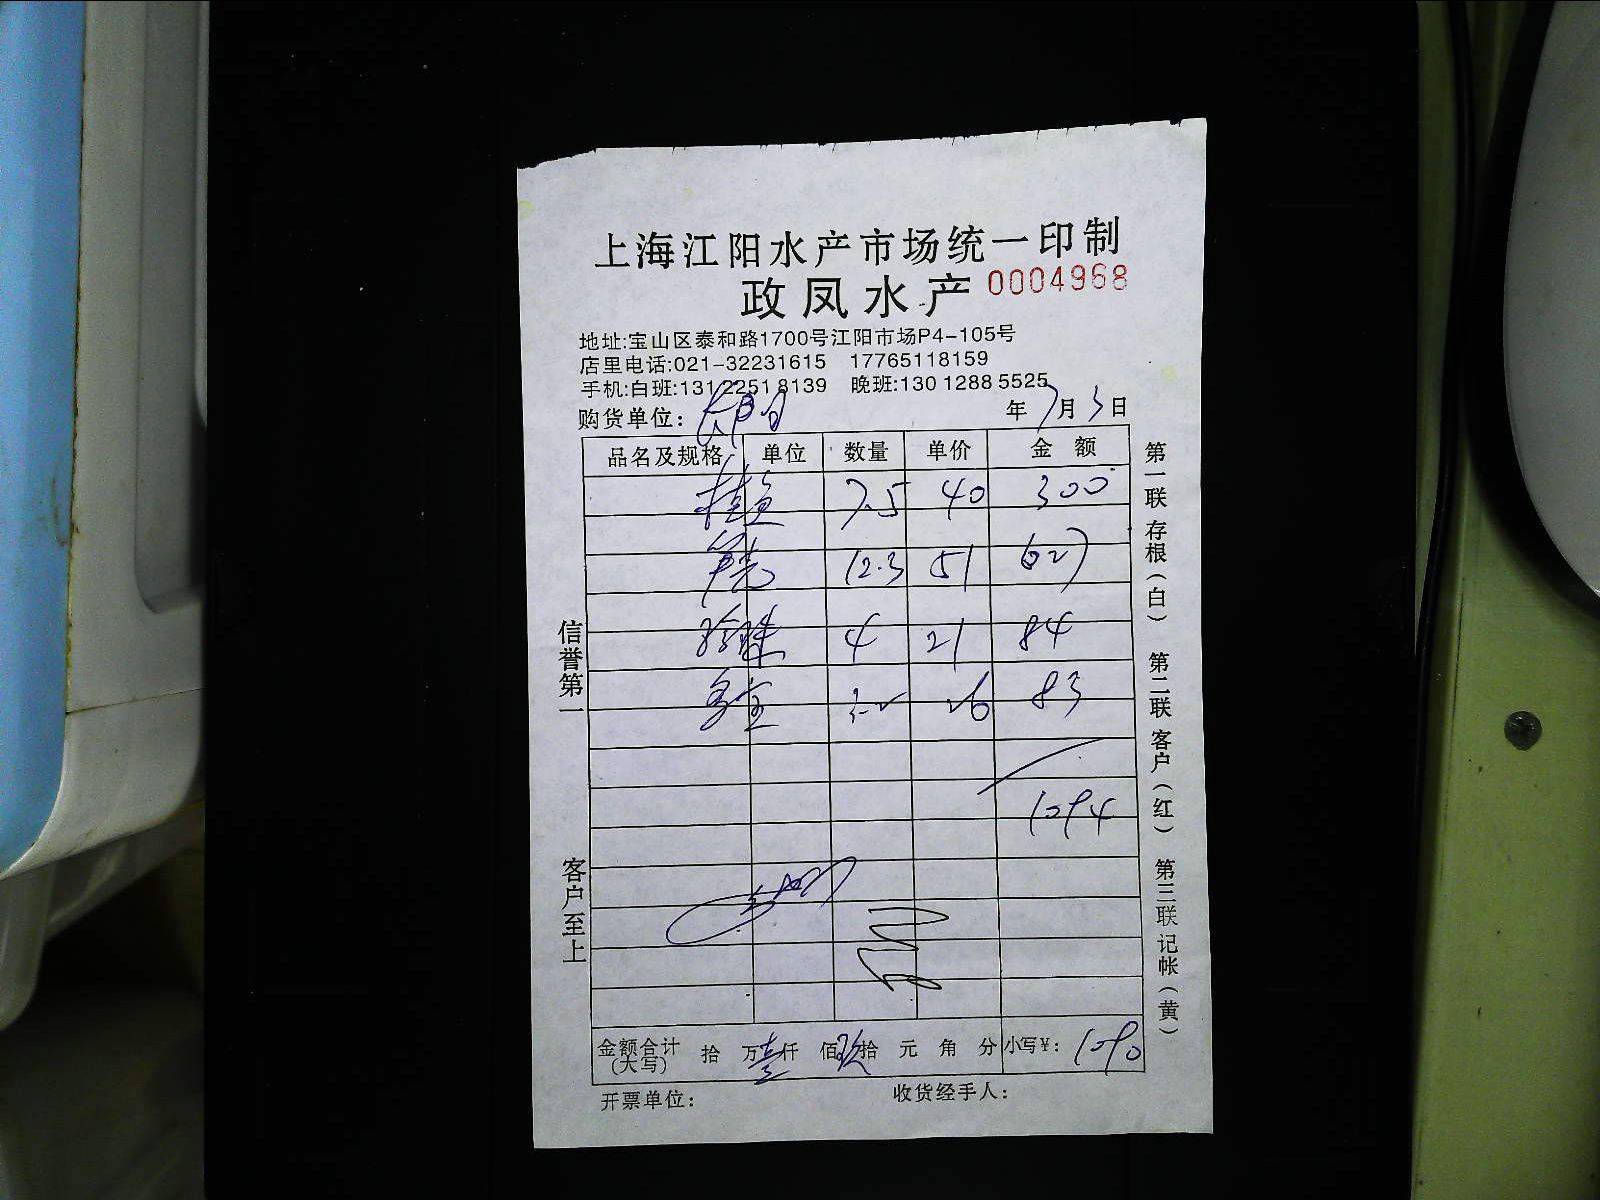 上海江阳水产市场统一印制
政凤水产 0004968
地址:宝山区泰和路1700号江阳市场P4-105号
店里电话:021-32231615 17765118159
手机:白班:131 2251 8139 晚班:130 1288 5525
购货单位: 年 7月 3日
品名及规格 单位 数量 单价 金额
桂鱼 7.5 40 300
12.3 51 627
4 21 84
3.2 26 83
1094
金额合计(大写) 拾 万 壹 仟 佰 玖 拾 元 角 分 小写¥: 1090
开票单位: 收货经手人:
信誉第一 客户至上
第一联存根(白) 第二联客户(红) 第三联记帐(黄)